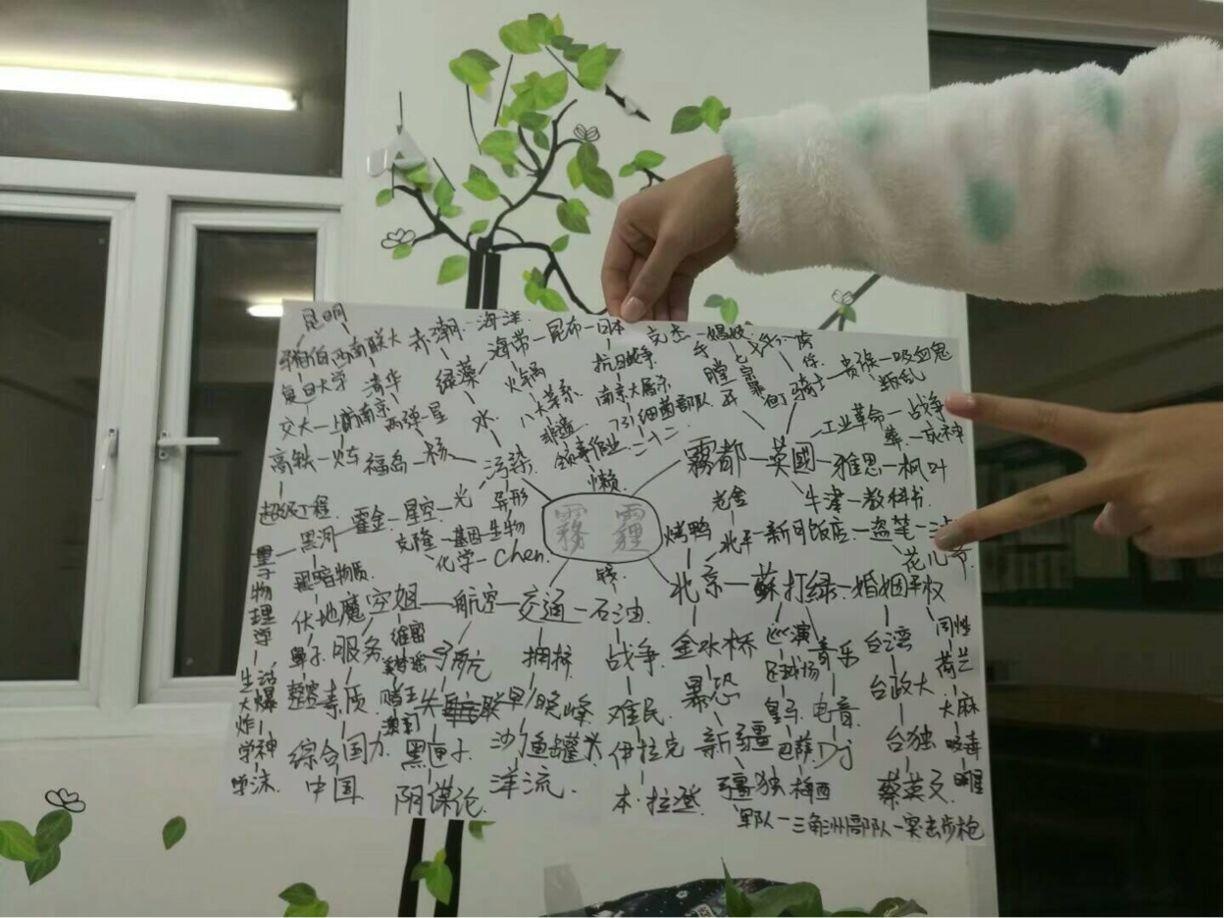 昆明
西南联大
赤潮-海洋
海带-昆布-日本
文杰-娼妓
复旦大学
清华
绿藻
火锅
抗日战争
骑士-贵族-吸血鬼
叛乱
交大-上海
南京
两弹一星
水
八大菜系
南京大屠杀
731细菌部队
工业革命-战争
高铁-火车
福岛-核
污染
非遗
霧都-英國-雅思-枫叶
懒
超级工程
霍金-星空-光
异形
老舍
牛津-教科书
黑洞
克隆-基因-生物
霧霾
烤鸭
北平-新月饭店-盗笔
花儿爷
化学-Chen
量子物理学
暗物质
伏地魔
空姐-航空-交通-石油
北京-蘇打绿-婚姻平权
鼻子
服务
维密
导航
拥挤
战争
金水桥
巡演
音乐
台湾
同性
荷兰
整容
素质
赌王
澳门
失联
早/晚峰
难民
暴恐
皇马
电音
台政大
大麻
生活大爆炸
综合国力
黑匣子
沙丁鱼罐头
伊拉克
新疆
巴萨
Dj
台独
吸毒
学神
学沫
中国
阴谋论
洋流
本·拉登
疆独
梅西
蔡英文
明星
军队-三角洲部队-突击步枪